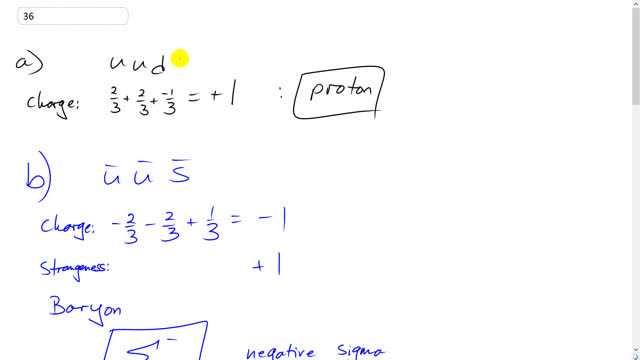 36
a) u u d
Charge: 2/3 + 2/3 + -1/3 = +1 : proton
b) ū ū s̄
Charge: -2/3 - 2/3 + 1/3 = -1
Strangeness: +1
Baryon
Σ⁻ negative sigma